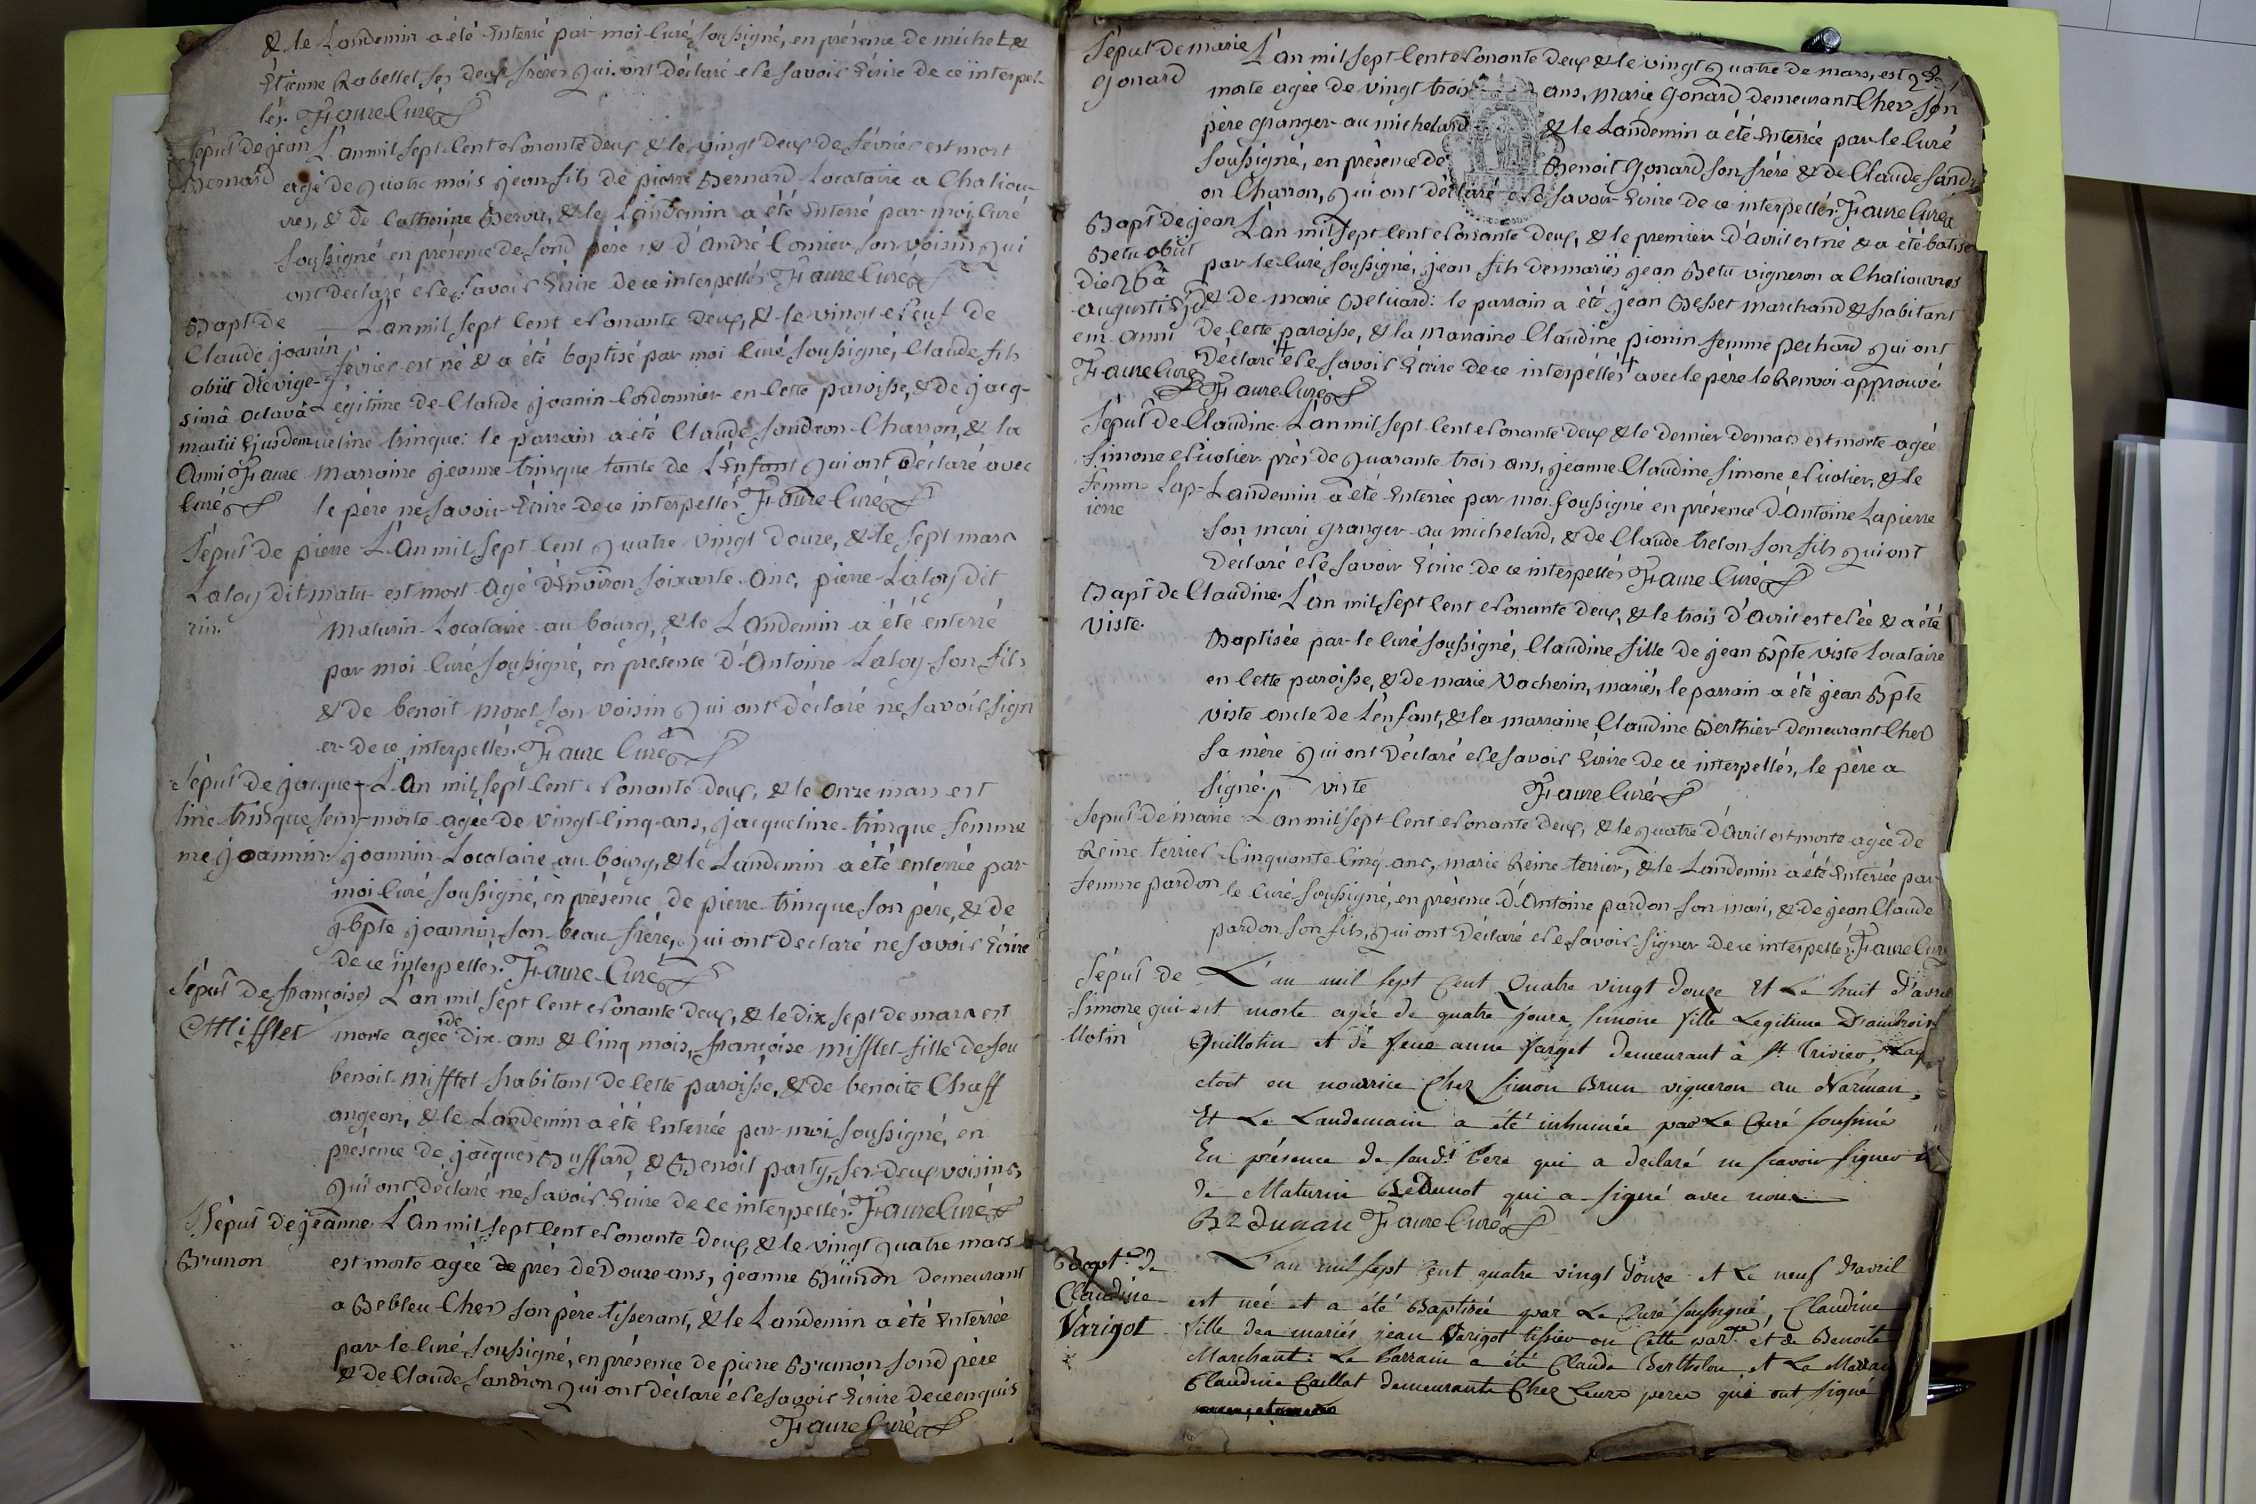 & le Landemin a été Enterré par moi Curé soussigné, en présence de michel &
Etienne Rabellet ses deux frères qui ont déclaré ne savoir Ecrire de ce interpel-
lés. Faure Curé
Sépul de jean
Bernard
L'an mil sept Cent nonante deux & le vingt deux de février est mort
agé de quatre mois jean fils de pierre Bernard Locataire a Chaliou-
vres, & de Catherine Bervu, & le Landemin a été Enterré par moi Curé
soussigné en présence de sond père & d'André Comier son voisin qui
ont declaré ne savoir Ecrire de ce interpellés Faure Curé
Bapt de
Claude joanin
obiit die vige-
simâ octavâ
martii Ejusdem
anni Faure
Curé
L'an mil sept Cent nonante deux, & le vingt neuf de
février est né & a été baptisé par moi Curé soussigné, Claude fils
Légitime de Claude joanin Cordonnier en Cette paroisse, & de jacq-
ueline trinque: le parrain a été Claude sandron Charron, & la
Marraine jeanne trinque tante de L'Enfant qui ont déclaré avec
le père ne savoir Ecrire de ce interpellés Faure Curé
Sépul de pierre
Laloy dit matu-
rin.
L'An mil sept Cent quatre vingt douze, & le sept mars
est mort agé d'Environ soixante ans, pierre Laloy dit
Maturin Locataire au bourg, & le Landemin a été enterré
par moi Curé soussigné, en présence d'Antoine Laloy son fils
& de benoit morel son voisin qui ont déclaré ne savoir sign
er de ce interpellés. Faure Curé
Sépul de jacque-
line trinque fem-
me joannin
L'An mil sept Cent nonante deux, & le onze mars est
morte agée de vingt Cinq ans, jacqueline trinque femme
joannin Locataire au bourg, & le Landemin a été enterrée par
moi Curé soussigné, en présence de pierre trinque son père, & de
j bpte joannin son beau frère, qui ont declaré ne savoir Ecrire
de ce interpellés. Faure Curé
Sépul de françoise
Mifflet
L'an mil sept Cent nonante deux, & le dix sept de mars est
morte agée de dix ans & Cinq mois, françoise mifflet fille de feu
benoit mifflet habitant de Cette paroisse, & de benoite Chaff
angeon, & le Landemin a été Enterrée par moi soussigné, en
présence de jacques Buffard & Benoit party, ses deux voisins
qui ont déclaré ne savoir Ecrire de ce interpellés. Faure Curé
Sépul de jeanne
Brunon
L'An mil sept Cent nonante deux, & le vingt quatre mars
est morte agée de près de Douze ans, jeanne Brunon demeurant
a Bebleu Ches son père tisserant, & le Landemin a été Enterrée
par le Curé soussigné, en présence de pierre Brunon sond père
& de Claude sandron qui ont déclaré ne savoir Ecrire de ce enquis
Faure Curé
Sépul de marie
gonard
L'an mil sept Cent nonante deux & le vingt quatre de mars, est
morte agée de vingt trois ans, marie gonard demeurant Ches son
père granger au michelard & le Landemin a été Enterrée par le Curé
soussigné, en présence de Benoit gonard son frère & de Claude sandr
on Charron, qui ont déclaré ne savoir Ecrire de ce interpellés. Faure Curé
Bapt de jean
Betu obiit
die 26â
augusti Ejusd
em anni
Faure Curé
L'an mil sept Cent nonante deux, & le premier d'Avril est né & a été batisé
par le Curé soussigné, jean fils des mariés jean Betu vigneron a Chaliouvres
& de marie Beluard: le parrain a été jean Besset marchand & habitant
de Cette paroisse, & la marraine Claudine pionin femme pechard qui ont
Déclaré ne savoir Ecrire de ce interpellés avec le père le Renvoi approuvé
Faure Curé
Sépul de Claudine
Simone nicolier
femme Lap-
ierre
L'an mil sept Cent nonante deux & le dernier de mars est morte agée
près de quarante trois ans, jeanne Claudine simone nicolier, & le
Landemin a été Enterrée par moi soussigné en présence d'Antoine Lapierre
son mari granger au michelard, & de Claude trelon son fils qui ont
Déclaré ne savoir Ecrire de ce interpellés Faure Curé
Bapt de Claudine
Viste.
L'an mil sept Cent nonante deux, & le trois d'Avril est née & a été
Baptisée par le Curé soussigné, Claudine fille de jean Bpte viste Locataire
en Cette paroisse, & de marie Vacherin, mariés, le parrain a été jean Bpte
viste oncle de L'enfant, & la marraine Claudine Berthier demeurant Ches
sa mère qui ont Déclaré ne savoir Ecrire de ce interpellés, le père a
signé. viste Faure Curé
Sépul de marie
Reine terrier
femme pardon
L'an mil sept Cent nonante deux, & le quatre d'Avril est morte agée de
Cinquante Cinq ans, marie Reine terrier, & le Landemin a été Enterrée par
le Curé soussigné, en présence d'Antoine pardon son mari, & de jean Claude
pardon son fils, qui ont Déclaré ne savoir signer de ce interpellés. Faure Curé
Sépul de
Simone gui-
llotin
L'an mil sept Cent Quatre vingt douze Et Le huit d'avril
est morte agée de quatre jours, simone fille Legitime D'ambroise
Guillotin et de feue anne farget demeurant à St Trivier,
etoit en nourrice Chez simon Brun vigneron au
Et Le Landemain a été inhumée par Le Curé soussigné
En présence de soud. Pere qui a declaré ne scavoir signer
de Maturin Bedunot qui a signé avec nous
Faure Curé
Bapt. de
Claudine
Varigot
L'an mil sept Cent quatre vingt douze et Le neuf d'avril
est née et a été Baptisée par Le Curé soussigné, Claudine
fille des mariés jean Varigot tissier en Cette par.se et de Benoite
Marchant: Le Parrain a été Claude Berthelon et La Marrai
Claudine Caillat demeurants Chez Leurs peres qui ont signé